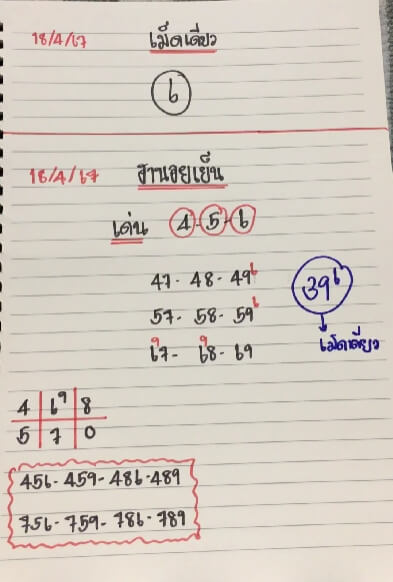 18/4/67
เม็ดเดียว
6
18/4/67
ฮานอยเย็น
เด่น 4-5-6
47- 48- 49⁶
57- 58- 59⁶
⁹67- ⁹68- 69
39⁶
เม็ดเดียว
4 6⁹ 8
5 7 0
456-459-486-489
756-759-786-789